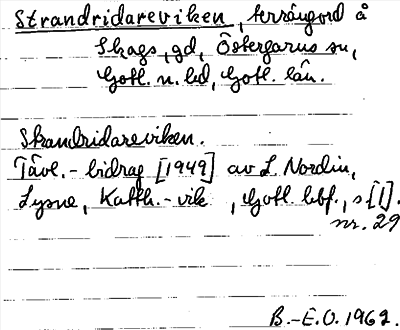 Strandridareviken, terrängord å
Skags, gd, Östergarns sn,
Gotl. n. hd, Gotl. län.
Strandridareviken.
Tävl.-bidrag [1949] av L Nordin,
Lysne, Katth.-vik, Gotl. hbf., s [1].
nr. 29
B.-E.O. 1962.